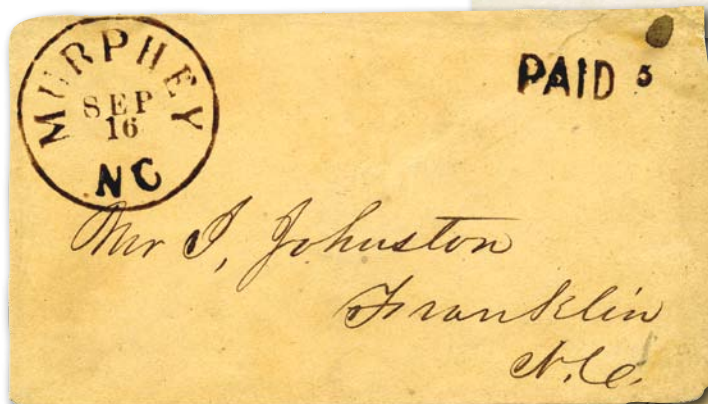 MURPHEY
SEP
16
NC
PAID 5
Mr I, Johnston
Franklin
N.C.